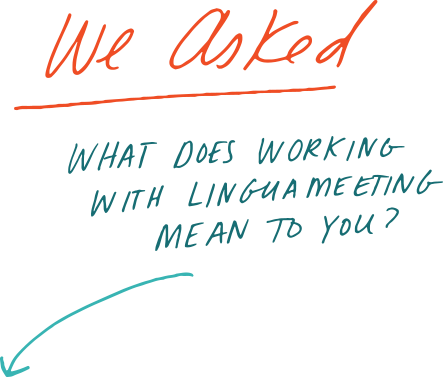 We Asked
WHAT DOES WORKING
WITH LINGUAMEETING
MEAN TO YOU?